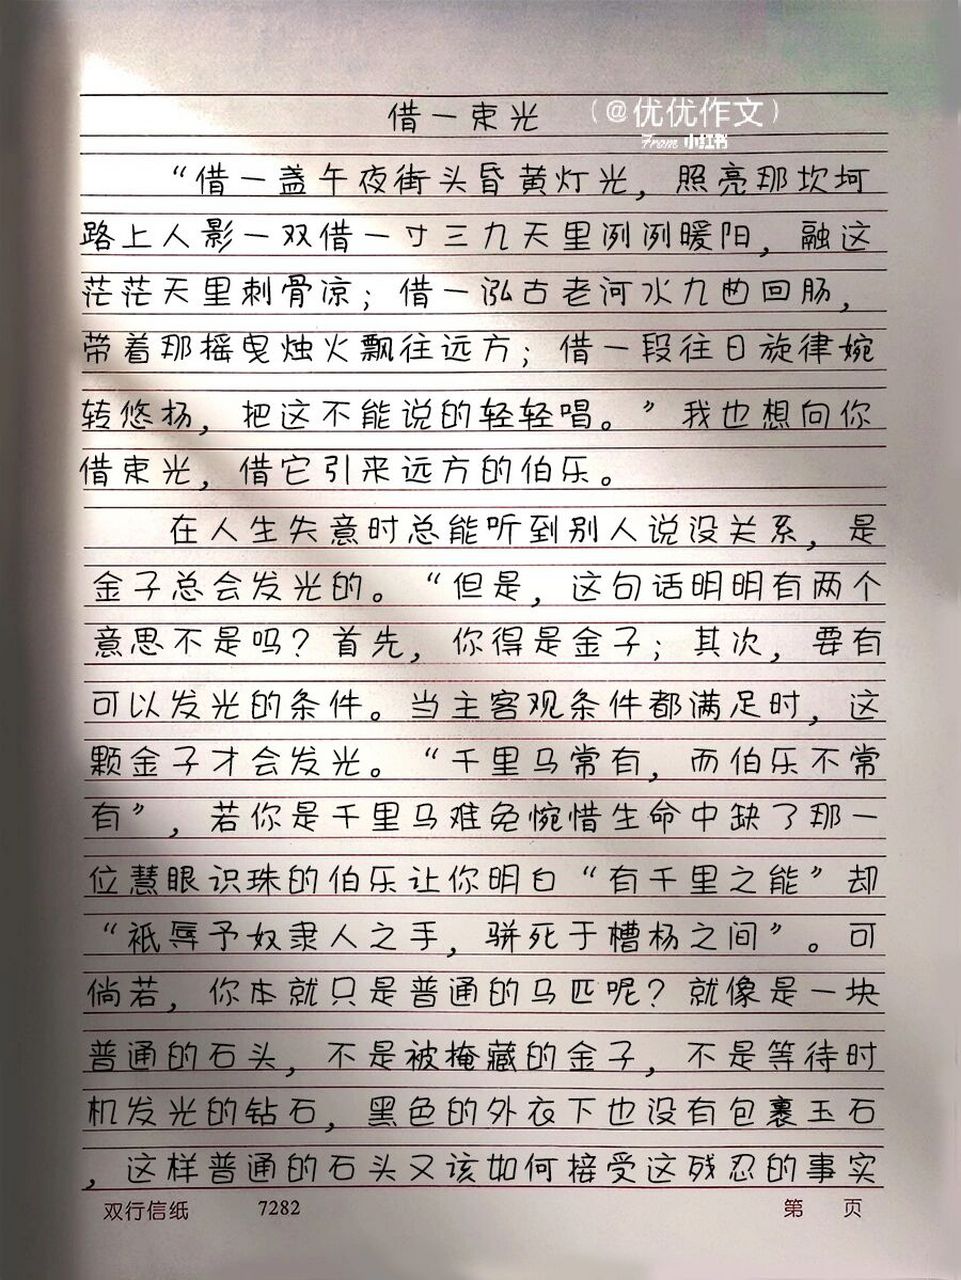 借一束光 （@优优作文）
From 小红书
“借一盏午夜街头昏黄灯光，照亮那坎坷
路上人影一双借一寸三九天里冽冽暖阳，融这
茫茫天里刺骨凉；借一泓古老河水九曲回肠，
带着那摇曳烛火飘往远方；借一段往日旋律婉
转悠扬，把这不能说的轻轻唱。”我也想向你
借束光，借它引来远方的伯乐。
在人生失意时总能听到别人说没关系，是
金子总会发光的。“但是，这句话明明有两个
意思不是吗？首先，你得是金子；其次，要有
可以发光的条件。当主客观条件都满足时，这
颗金子才会发光。“千里马常有，而伯乐不常
有”，若你是千里马难免惋惜生命中缺了那一
位慧眼识珠的伯乐让你明白“有千里之能”却
“祇辱予奴隶人之手，骈死于槽杨之间”。可
倘若，你本就只是普通的马匹呢？就像是一块
普通的石头，不是被掩藏的金子，不是等待时
机发光的钻石，黑色的外衣下也没有包裹玉石
，这样普通的石头又该如何接受这残忍的事实
双行信纸 7282 第 页